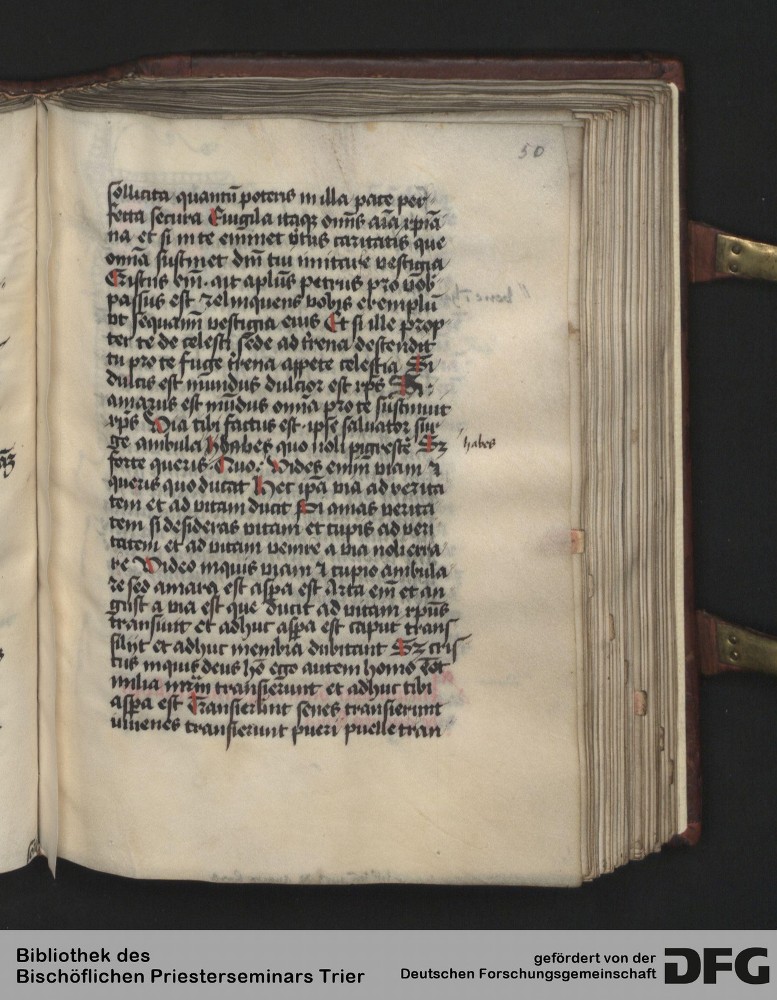 50
sollicita quantū poteris in illa pace per
fecta secura Euigila itaqꝫ om̄is aīa xp̄ia
na et si in te eminet v̄tus caritatis que
om̄ia sustinet dn̄i tui imitare vestigia
Cristus em̄ · ait apl̄us petrus pro vob̄
passus est relinquens vobis exemplū
vt sequamī vestigia eius Et si ille prop
ter te de celesti sede ad t̄rena descendit
tu pro te fuge t̄rena appete celestia Si
dulcis est mūndus dulcior est xp̄s Si
amarus est mūdus om̄ia pro te sustinuit
xp̄s Uia tibi factus est · ipse saluator sur
ge ambula habes quo noli pigrescē Sꝫ
habes
forte queris · Quo · Uides enim viam ⁊
queris quo ducat Hec ip̄a via ad verita
tem et ad vitam ducit Si amas verita
tem si desideras vitam et cupis ad veri
tatem et ad vitam venire a via noli erra
re Uideo inquis viam ⁊ cupio ambula
re sed amara est asp̄a est Arta em̄ et an
gust a via est que ducit ad vitam xp̄us
transiuit et adhuc asp̄a est caput trans
silijt et adhuc membra dubitant Sꝫ cris
tus inquis deus hō ego autem homo Tot
milia mr̄im transierunt et adhuc tibi
asp̄a est Transierunt senes transierunt
iuuenes transierunt pueri puelle tran
Bibliothek des
Bischöflichen Priesterseminars Trier
gefördert von der
Deutschen Forschungsgemeinschaft
DFG